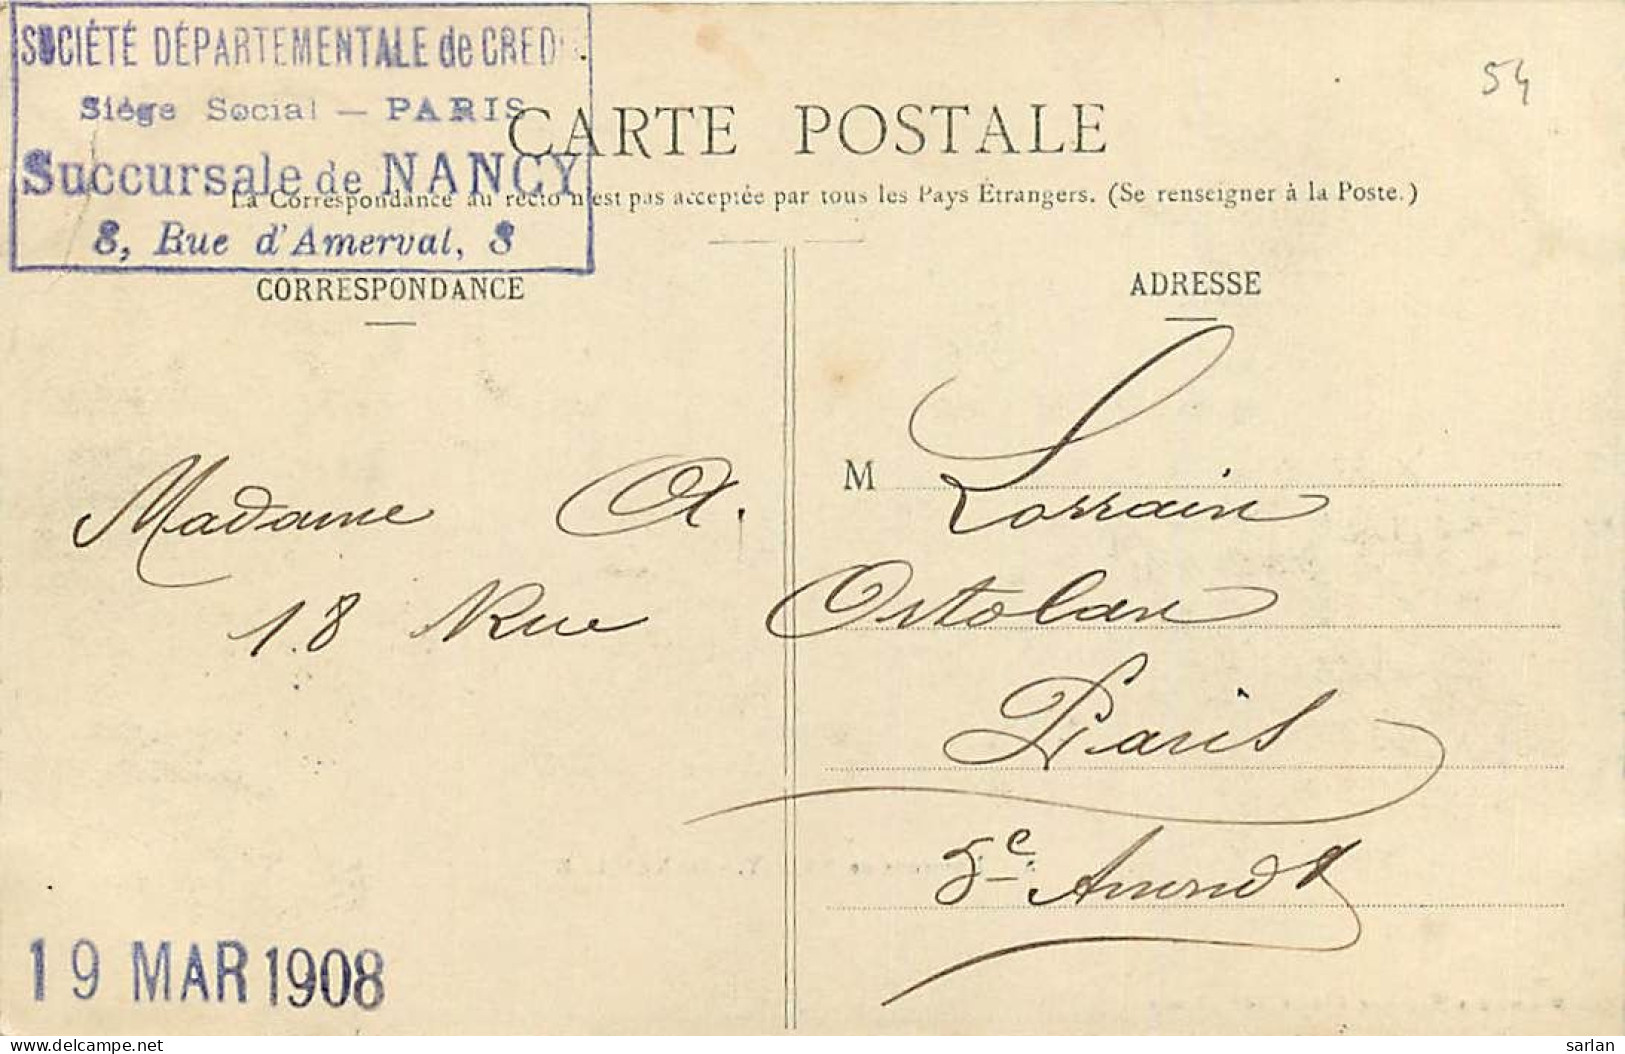 SOCIÉTÉ DÉPARTEMENTALE de CRED
Siège Social — PARIS
Succursale de NANCY
8, Rue d'Amerval, 8
54
CARTE POSTALE
La Correspondance au recto n'est pas acceptée par tous les Pays Étrangers. (Se renseigner à la Poste.)
CORRESPONDANCE
ADRESSE
M
Madame A. Lorrain
18 Rue Ortolan
Paris
5e Arrondt
19 MAR 1908
www.delcampe.net
sarlan